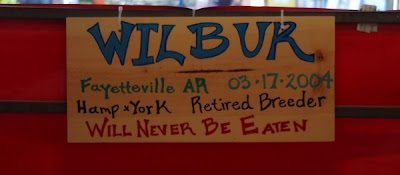 WILBUR
Fayetteville AR 03·17·2004
Hamp x York Retired Breeder
WILL NEVER BE EATEN